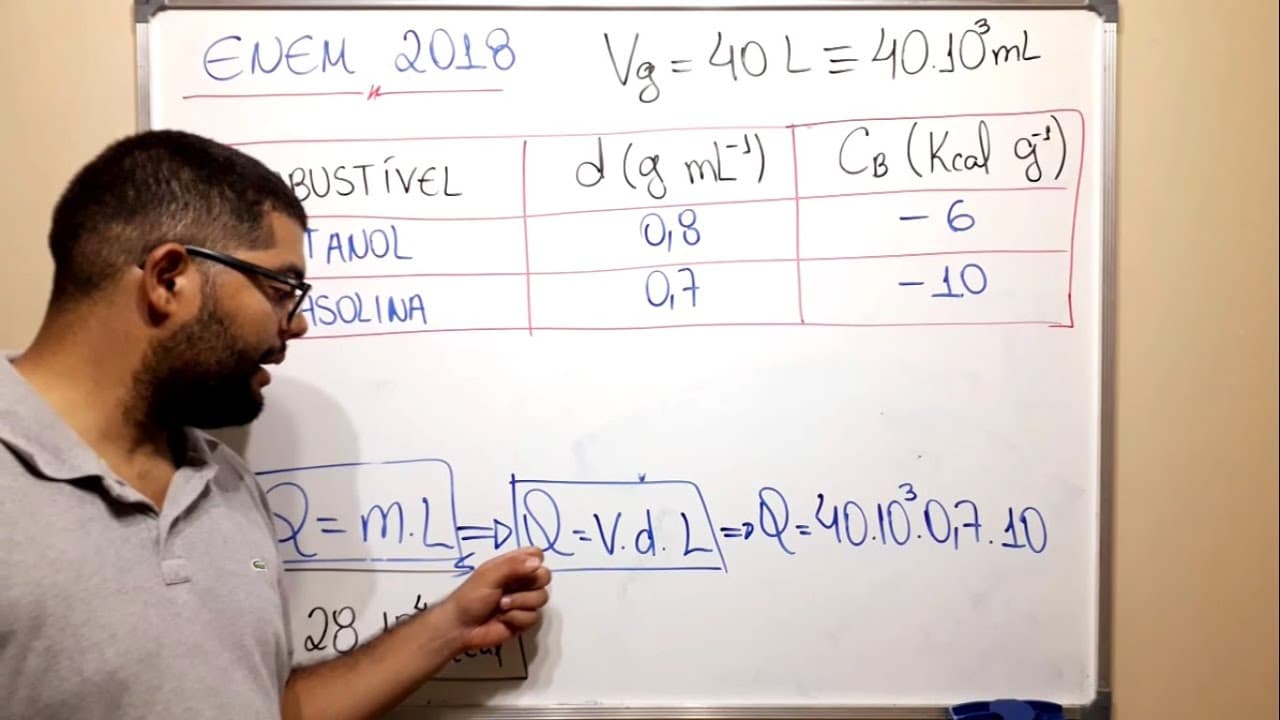 ENEM 2018
Vg = 40 L ≡ 40.10³mL
BUSTÍVEL d (g mL⁻¹) C_B (Kcal g⁻¹)
TANOL 0,8 - 6
ASOLINA 0,7 - 10
Q = m.L ⇒ Q = V.d.L ⇒ Q = 40.10³.0,7.10
28